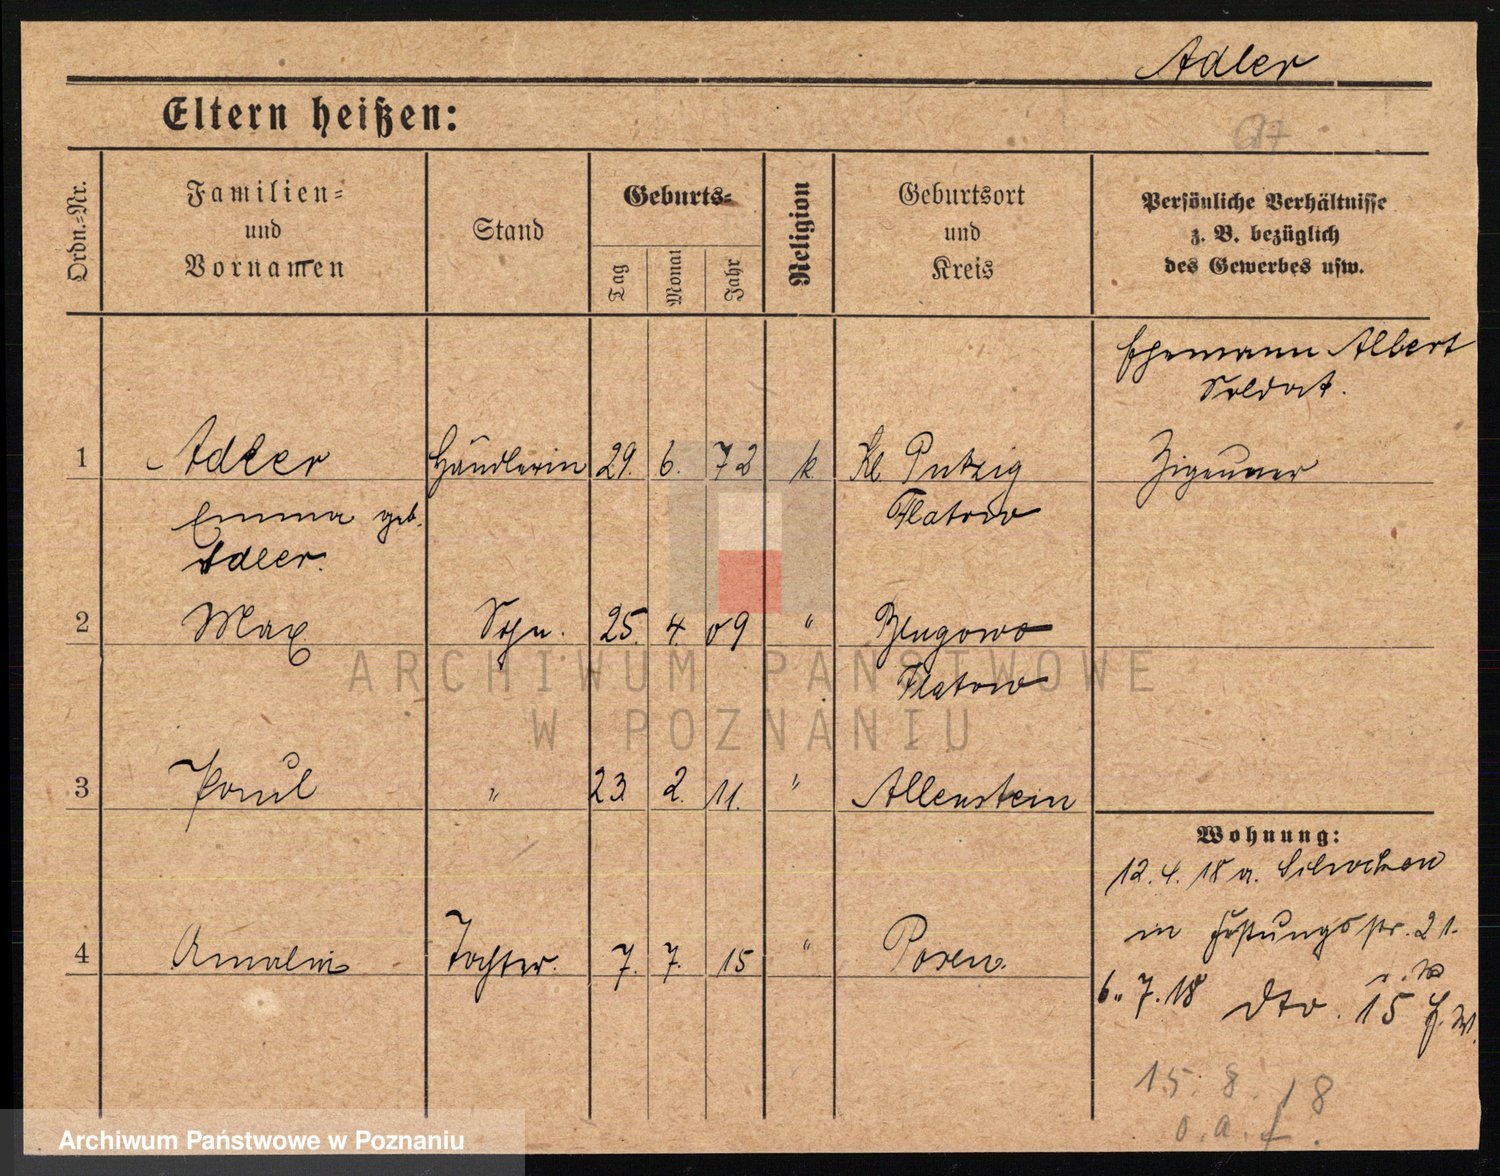 Adler
Eltern heißen:
Ordn.-Nr.
Familien- und Vornamen
Stand
Geburts-
Tag
Monat
Jahr
Religion
Geburtsort und Kreis
Persönliche Verhältnisse
z. B. bezüglich
des Gewerbes usw.
Ehemann Albert
Soldat.
1 Adler Händlerin 29. 6. 72 k. Kl. Putzig Zigeuner
Emma geb. Flatow
Adler.
2 Max Sohn. 25. 4. 09 " Blugowo
Flatow
3 Paul " 23. 2. 11. " Allenstein
Wohnung:
12. 4. 18 a.
in Festungsstr. 21.
4 Amalie Tochter. 7. 7. 15 " Posen.
6. 7. 18 dto. 15
15. 8. 18
o. a.
ARCHIWUM PAŃSTWOWE
W POZNANIU
Archiwum Państwowe w Poznaniu